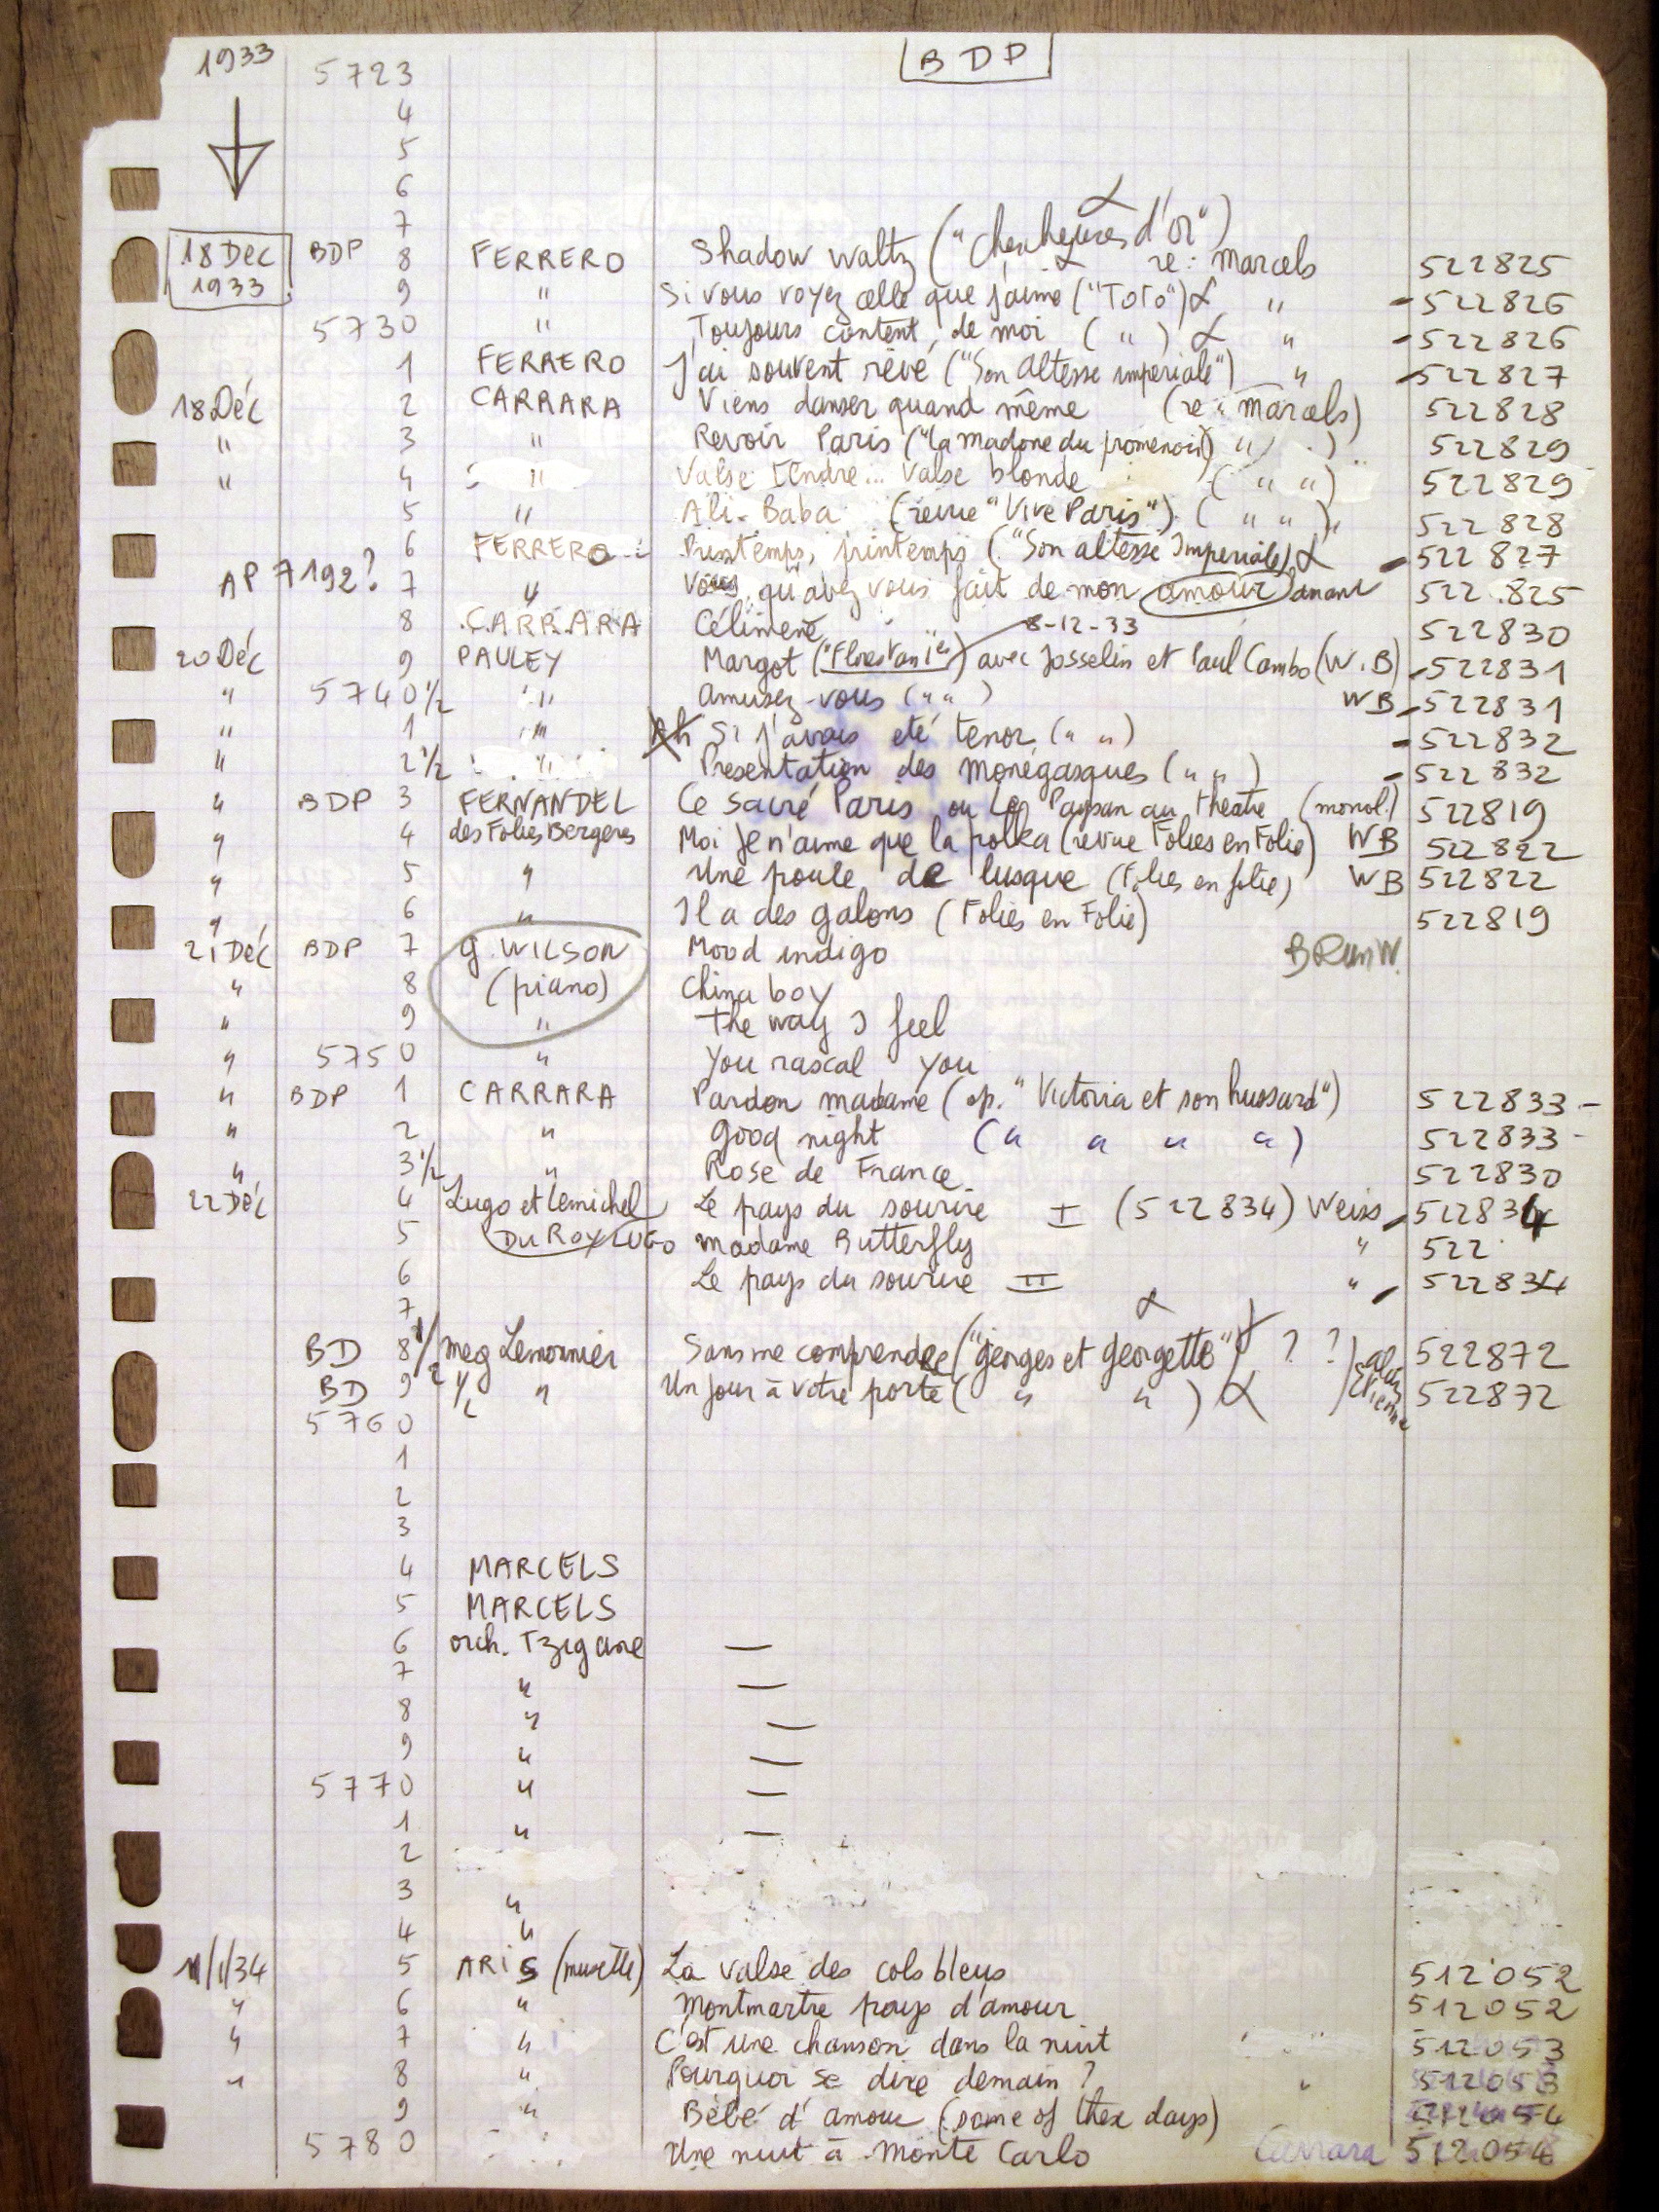 1933 5723 BDP
4
5
6
7
18 Dec 1933 BDP 8 FERRERO Shadow waltz ("Chercheuses d'or") re: Marcels 522825
9 " Si vous voyez celle que j'aime ("TOTO") α " -522826
5730 " Toujours content, de moi ( " ) α " -522826
1 FERRERO J'ai souvent rêvé ("Son Altesse impériale") " -522827
18 Déc 2 CARRARA Viens danser quand même (re: Marcels) 522828
" 3 " Revoir Paris ("la madone du promenoir) " ) 522829
" 4 " Valse tendre... Valse blonde ( " " ) 522829
5 " Ali-Baba (revue "Vive Paris") ( " " ) 522828
6 FERRERO Printemps, printemps ("Son altesse Imperiale) α -522827
AP 7192? 7 " qu'avez vous fait de mon amour amant 522825
8 CARRARA Célimene 522830
8-12-33
20 Déc 9 PAULEY Margot ("Florestan Ier") avec Josselin et Paul Cambo (W.B) -522831
" 5740 1/2 " Amusez-vous ( " " ) WB -522831
" 1 " Ah Si j'avais été tenor ( " " ) -522832
" 2 1/2 " Presentation des monégasques ( " " ) -522832
" BDP 3 FERNANDEL Ce sacré Paris ou Le Paysan au theatre (monol.) 522819
" 4 des Folies Bergeres Moi Je n'aime que la polka (revue Folies en Folie) WB 522822
" 5 " Une poule de lusque (Folies en folie) WB 522822
" 6 " Il a des galons (Folies en Folie) 522819
21 Déc BDP 7 G. WILSON Mood indigo BRunW.
" 8 (piano) China boy
" 9 " The way I feel
" 5750 " You rascal you
" BDP 1 CARRARA Pardon madame (op. "Victoria et son hussard") 522833 -
" 2 " Good night ( " " " " ) 522833 -
" 3 1/2 " Rose de France 522830
22 Déc 4 Lugo et Lemichel Le pays du sourire I (522834) Weiss -512834
5 DU ROY LUGO Madame Butterfly " 522
6 Le pays du sourire II " -522834
7
BD 8 1/2 Meg Lemonnier Sans me comprendre ("Georges et Georgette") α ? ? ) 522872
BD 9 1/2 " Un jour à votre porte ( " " ) α ) Etienne 522872
5760
1
2
3
4 MARCELS
5 MARCELS
6 orch. Tzigane —
7 " —
8 " —
9 " —
5770 " —
1 " —
2
3 "
4 "
11/1/34 5 ARIS (musette) La valse des cols bleus 512052
" 6 " Montmartre pays d'amour 512052
" 7 " C'est une chanson dans la nuit 512053
" 8 " Pourquoi se dire demain ? " 512053
9 " Bébé d'amour (some of thex days) 512054
5780 Une nuit à Monte Carlo Carrara 512054